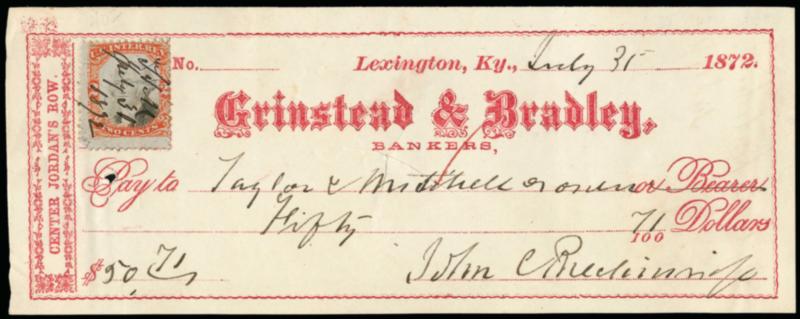 CENTER JORDAN'S ROW.
U.S. INTER. REV.
July 31
1872
TWO CENTS
No.
Lexington, Ky., July 31 1872.
Grinstead & Bradley,
BANKERS,
Pay to Taylor & Mitchell or order or Bearer
Fifty 71/100 Dollars
$50,71
John C Breckinridge